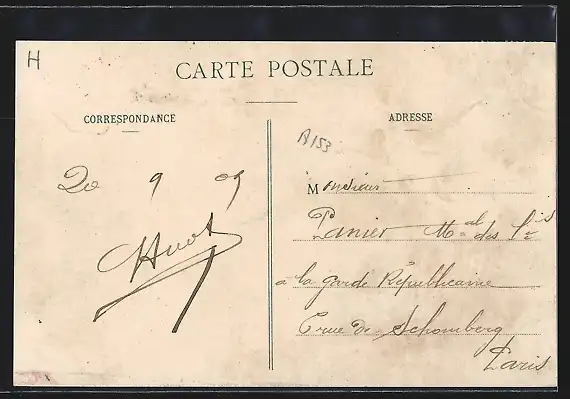 H
CARTE POSTALE
CORRESPONDANCE
ADRESSE
A153
20 9 09
Huot
Monsieur
Panier Mal des Lis
à la garde Républicaine
6 rue de Schomberg
Paris